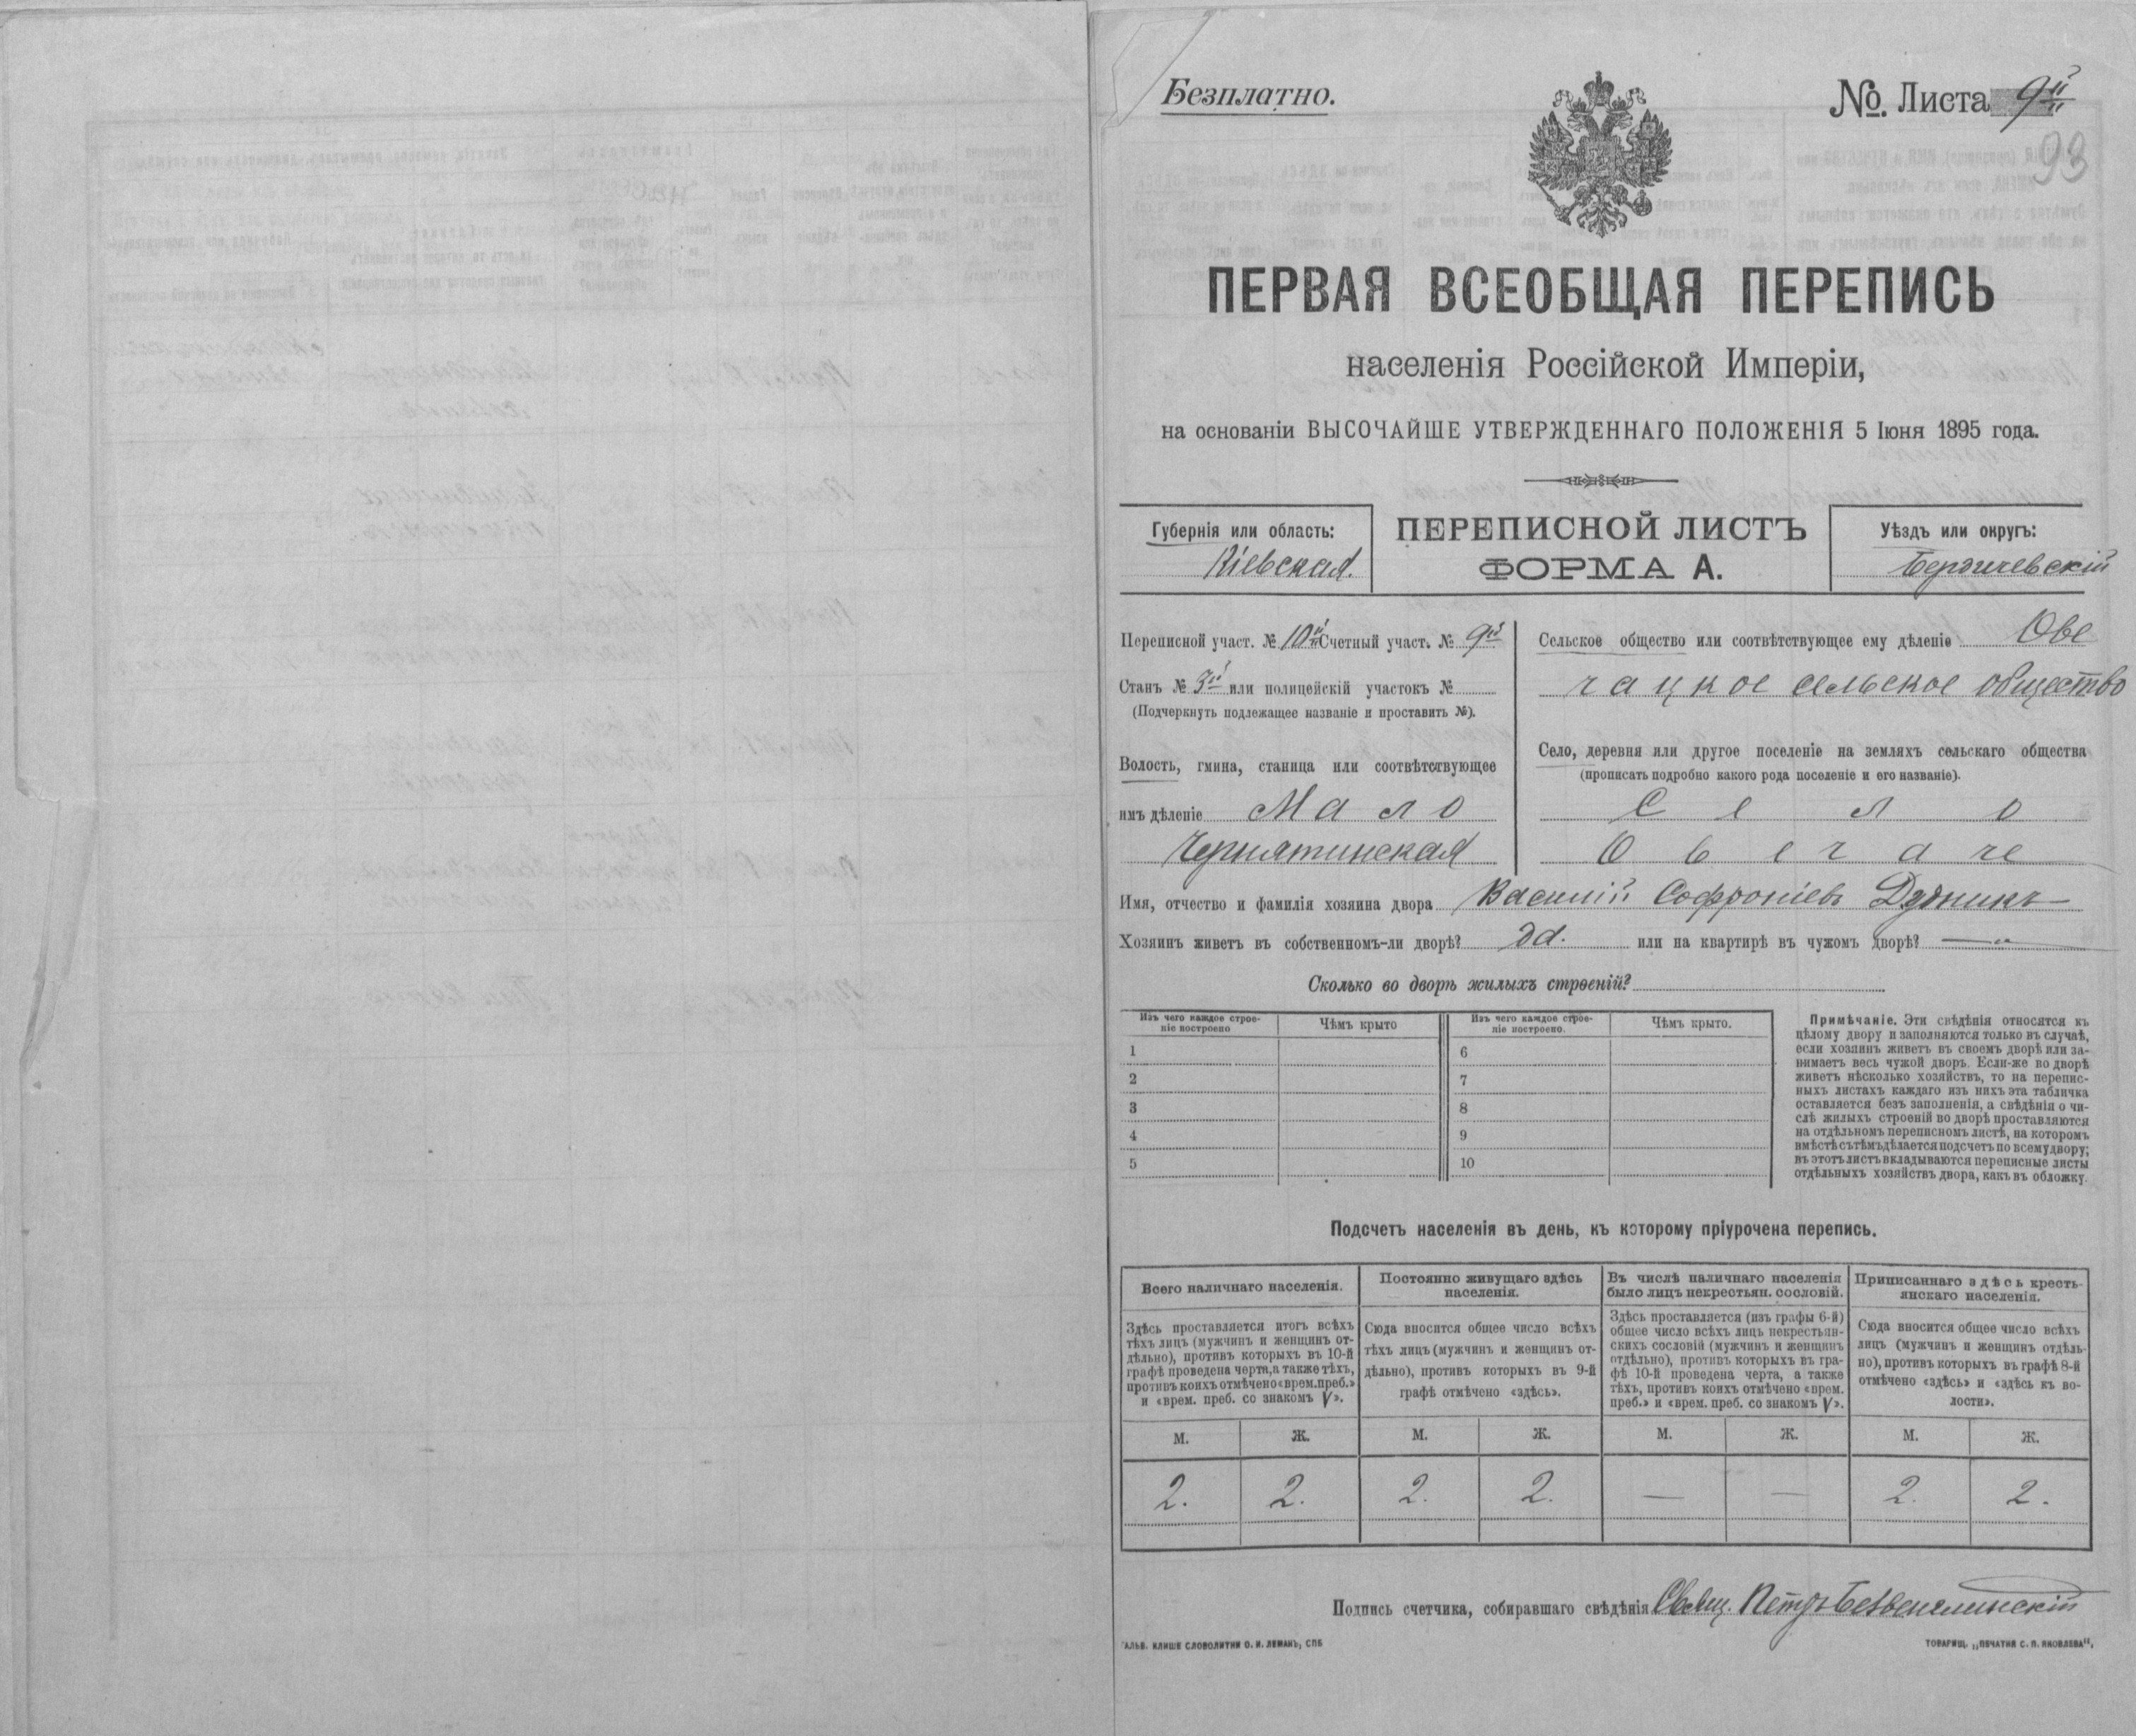 Безплатно.
№. Листа 9й
93
ПЕРВАЯ ВСЕОБЩАЯ ПЕРЕПИСЬ
населенія Россійской Имперіи,
на основаніи ВЫСОЧАЙШЕ УТВЕРЖДЕННАГО ПОЛОЖЕНІЯ 5 Іюня 1895 года.
Губернія или область:
Кіевская.
ПЕРЕПИСНОЙ ЛИСТЪ
ФОРМА А.
Уѣздъ или округъ:
Бердичевскій
Переписной участ. № 10й Счетный участ. № 9й
Станъ № 3й или полицейскій участокъ №
(Подчеркнуть подлежащее названіе и проставить №).
Волость, гмина, станица или соотвѣтствующее
имъ дѣленіе Мало
Чернятинская
Сельское общество или соотвѣтствующее ему дѣленіе Ове
чацкое сельское общество
Село, деревня или другое поселеніе на земляхъ сельскаго общества
(прописать подробно какого рода поселеніе и его названіе).
Село
Овечаче
Имя, отчество и фамилія хозяина двора Василій Софроніевъ Дудникъ
Хозяинъ живетъ въ собственномъ-ли дворѣ? да. или на квартирѣ въ чужомъ дворѣ? — " —
Сколько во дворѣ жилыхъ строеній?
Изъ чего каждое строе-
ніе построено
Чѣмъ крыто
Изъ чего каждое строе-
ніе построено.
Чѣмъ крыто.
1
6
2
7
3
8
4
9
5
10
Примѣчаніе. Эти свѣдѣнія относятся къ
цѣлому двору и заполняются только въ случаѣ,
если хозяинъ живетъ въ своемъ дворѣ или за-
нимаетъ весь чужой дворъ. Если-же во дворѣ
живетъ нѣсколько хозяйствъ, то на перепис-
ныхъ листахъ каждаго изъ нихъ эта табличка
оставляется безъ заполненія, а свѣдѣнія о чи-
слѣ жилыхъ строеній во дворѣ проставляются
на отдѣльномъ переписномъ листѣ, на которомъ
вмѣстѣ съ тѣмъ дѣлается подсчетъ по всему двору;
въ этотъ листъ вкладываются переписные листы
отдѣльныхъ хозяйствъ двора, какъ въ обложку.
Подсчетъ населенія въ день, къ которому пріурочена перепись.
Всего наличнаго населенія.
Здѣсь проставляется итогъ всѣхъ
тѣхъ лицъ (мужчинъ и женщинъ от-
дѣльно), противъ которыхъ въ 10-й
графѣ проведена черта, а также тѣхъ,
противъ коихъ отмѣчено «врем. преб.»
и «врем. преб. со знакомъ V».
Постоянно живущаго здѣсь
населенія.
Сюда вносится общее число всѣхъ
тѣхъ лицъ (мужчинъ и женщинъ от-
дѣльно), противъ которыхъ въ 9-й
графѣ отмѣчено «здѣсь».
Въ числѣ наличнаго населенія
было лицъ некрестьян. сословій.
Здѣсь проставляется (изъ графы 6-й)
общее число всѣхъ лицъ некрестьян-
скихъ сословій (мужчинъ и женщинъ
отдѣльно), противъ которыхъ въ гра-
фѣ 10-й проведена черта, а также
тѣхъ, противъ коихъ отмѣчено «врем.
преб.» и «врем. преб. со знакомъ V».
Приписаннаго здѣсь кресть-
янскаго населенія.
Сюда вносится общее число всѣхъ
лицъ (мужчинъ и женщинъ отдѣль-
но), противъ которыхъ въ графѣ 8-й
отмѣчено «здѣсь» и «здѣсь къ во-
лости».
М. Ж. М. Ж. М. Ж. М. Ж.
2. 2. 2. 2. — — 2. 2.
Подпись счетчика, собиравшаго свѣдѣнія Свящ. Петръ
ГАЛЬВ. КЛИШЕ СЛОВОЛИТНИ О. И. ЛЕМАНЪ, СПБ
ТОВАРИЩ. „ПЕЧАТНЯ С. П. ЯКОВЛЕВА",